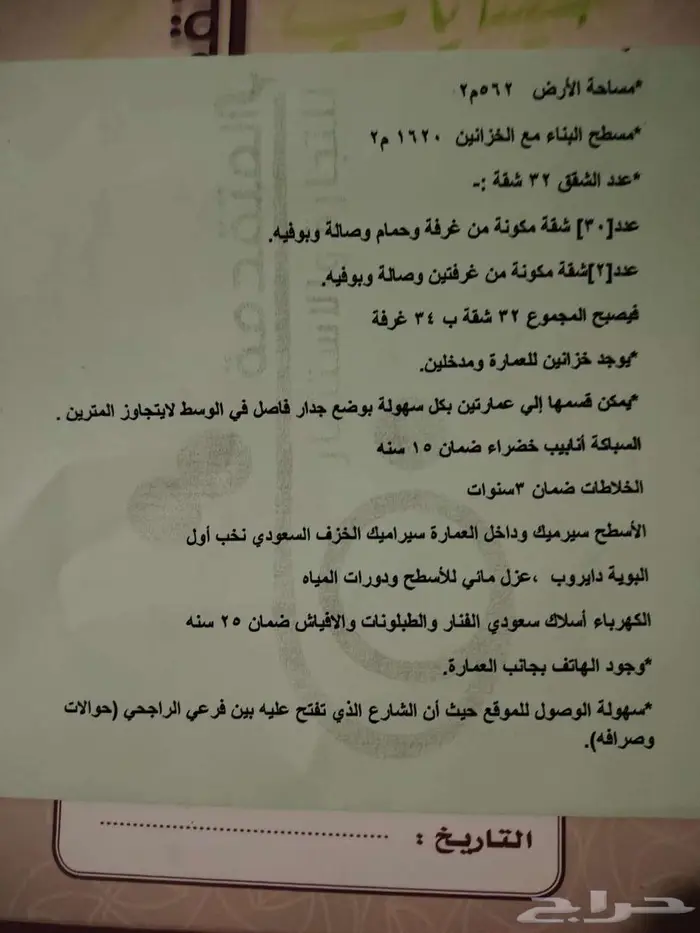 *مساحة الأرض ٥٦٢م٢
*مسطح البناء مع الخزانين ١٦٢٠ م٢
*عدد الشقق ٣٢ شقة :-
عدد[٣٠] شقة مكونة من غرفة وحمام وصالة وبوفيه.
عدد[٢]شقة مكونة من غرفتين وصالة وبوفيه.
فيصبح المجموع ٣٢ شقة ب ٣٤ غرفة
*يوجد خزانين للعمارة ومدخلين.
*يمكن قسمها إلي عمارتين بكل سهولة بوضع جدار فاصل في الوسط لايتجاوز المترين .
السباكة أنابيب خضراء ضمان ١٥ سنه
الخلاطات ضمان ٣سنوات
الأسطح سيرميك وداخل العمارة سيراميك الخزف السعودي نخب أول
البوية دايروب ،عزل مائي للأسطح ودورات المياه
الكهرباء أسلاك سعودي الفنار والطبلونات والافياش ضمان ٢٥ سنه
*وجود الهاتف بجانب العمارة.
*سهولة الوصول للموقع حيث أن الشارع الذي تفتح عليه بين فرعي الراجحي (حوالات
وصرافه).
التاريخ : ....................
حراج